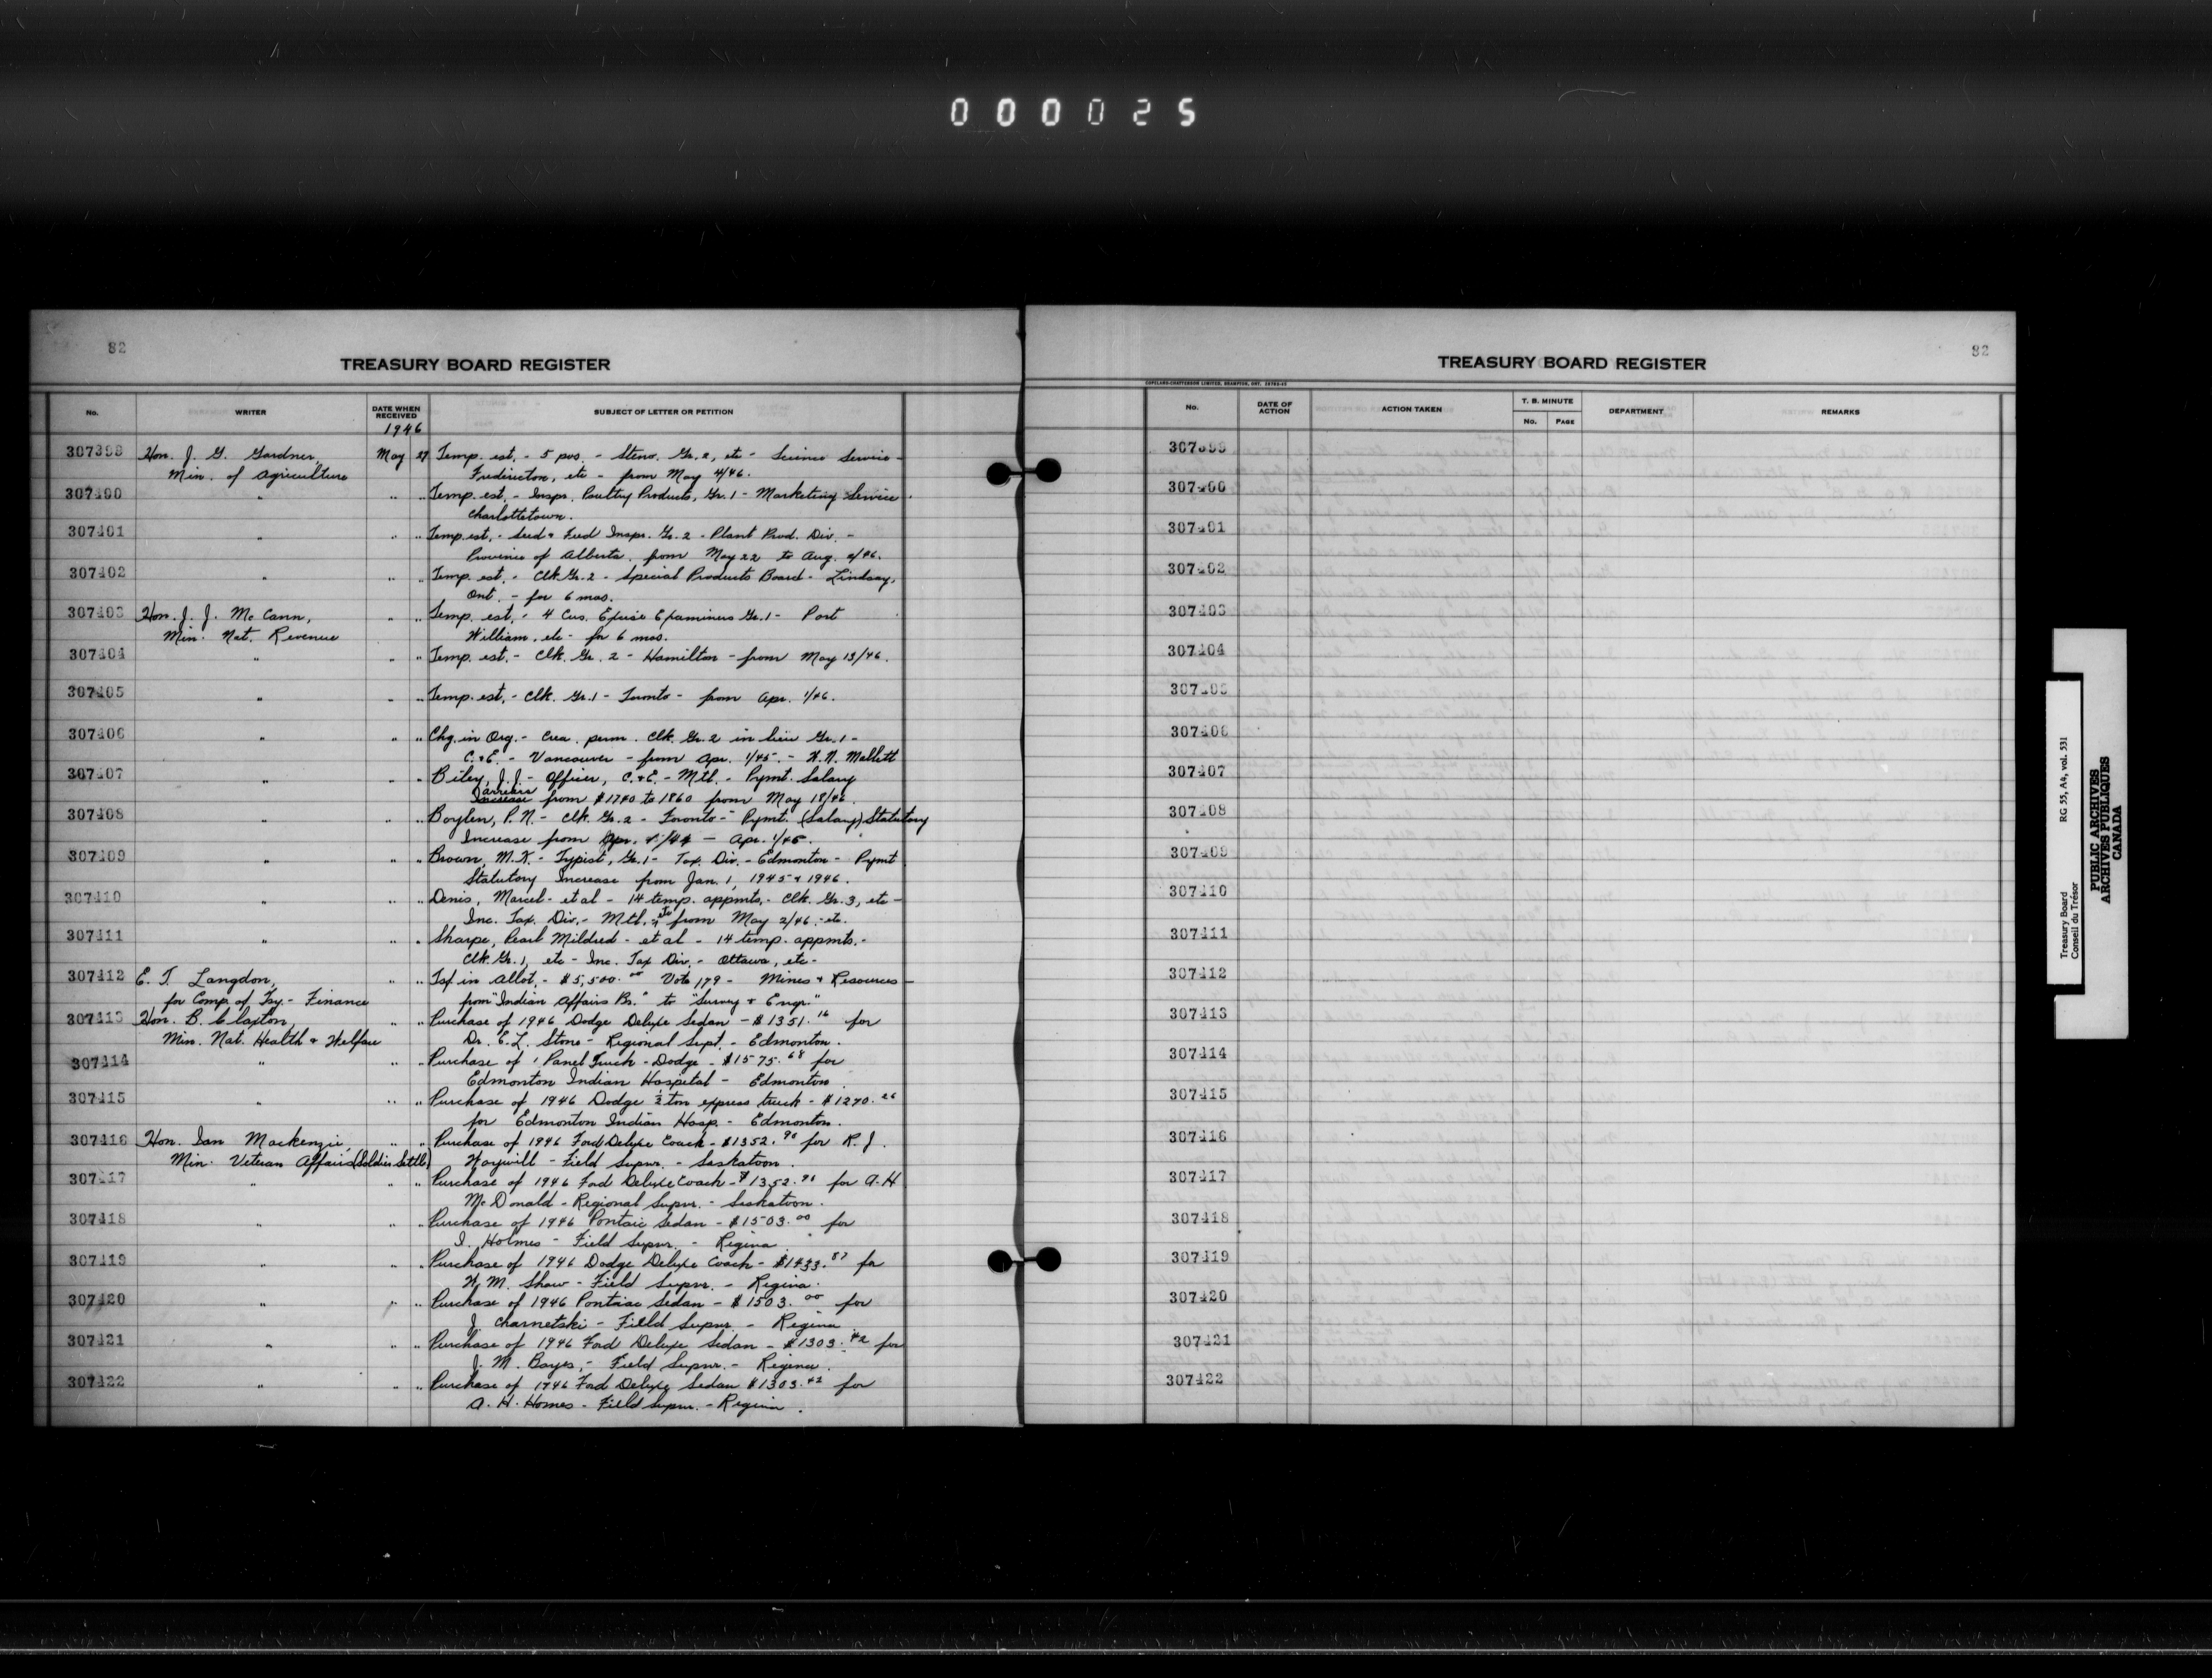 000025
82
TREASURY BOARD REGISTER
No. WRITER DATE WHEN RECEIVED SUBJECT OF LETTER OR PETITION
1946
307399 Hon. J. G. Gardner, May 27 Temp. est. - 5 pos. - Steno. Gr. 2, etc - Science Service -
Min. of Agriculture Fredericton, etc - from May 4/46.
307400 " " " Temp. est. - Inspr. Poultry Products, Gr. 1 - Marketing Service
Charlottetown.
307401 " " " Temp. est. - Seed & Feed Inspr. Gr. 2 - Plant Prod. Div. -
Province of Alberta, from May 22 to Aug. 2/46.
307402 " " " Temp. est. - Clk Gr. 2 - Special Products Board - Lindsay,
Ont. - for 6 mos.
307403 Hon. J. J. McCann, " " Temp. est. - 4 Cus. Excise Examiners Gr. 1 - Port
Min. Nat. Revenue William, etc - for 6 mos.
307404 " " " Temp. est. - Clk. Gr. 2 - Hamilton - from May 13/46.
307405 " " " Temp. est. - Clk. Gr. 1 - Toronto - from Apr. 1/46.
307406 " " " Chg. in Org. - Crea. perm. Clk. Gr. 2 in lieu Gr. 1 -
C. & E. - Vancouver - from Apr. 1/45. - Mallett
307407 " " " Biley, J. J. - Officer, C. & E. - Mtl. - Pymt. Salary
arrears
Increase from $1740 to 1860 from May 18/46.
307408 " " " Boylen, P. N. - Clk. Gr. 2 - Toronto - Pymt. (Salary) Statutory
Increase from Apr. 1/44 - Apr. 1/45.
307409 " " " Brown, M. K. - Typist, Gr. 1 - Tax. Div. - Edmonton - Pymt
Statutory Increase from Jan. 1, 1945 & 1946.
307410 " " " Denis, Marcel - et al - 14 temp. appmts. - Clk. Gr. 3, etc -
Inc. Tax. Div. - Mtl. etc from May 2/46. - etc.
307411 " " " Sharpe, Pearl Mildred - et al - 14 temp. appmts. -
Clk. Gr. 1, etc - Inc. Tax Div. - Ottawa, etc -
307412 E. T. Langdon, " " Tsf. in Allot. - $5,500.00 Vote 179 - Mines & Resources -
for Comp. of Tsy. - Finance from "Indian Affairs Br." to "Survey & Engr."
307413 Hon. B. Claxton, " " Purchase of 1946 Dodge Deluxe Sedan - $1351.16 for
Min. Nat. Health & Welfare Dr. E. L. Stone - Regional Supt. - Edmonton.
307414 " " " Purchase of 1 Panel Truck - Dodge - $1575.68 for
Edmonton Indian Hospital - Edmonton.
307415 " " " Purchase of 1946 Dodge ½ ton express truck - $1270.26
for Edmonton Indian Hosp. - Edmonton.
307416 Hon. Ian Mackenzie, " " Purchase of 1946 Ford Deluxe Coach - $1352.98 for R. J.
Min. Veteran Affairs (Soldier Settl.) - Field Supvr. - Saskatoon.
307417 " " " Purchase of 1946 Ford Deluxe Coach - $1352.98 for A. H
McDonald - Regional Supvr. - Saskatoon.
307418 " " " Purchase of 1946 Pontaic Sedan - $1503.00 for
I. Holmes - Field Supvr. - Regina
307419 " " " Purchase of 1946 Dodge Deluxe Coach - $1433.87 for
W. M. Shaw - Field Supvr. - Regina.
307420 " " " Purchase of 1946 Pontiac Sedan - $1503.00 for
J. Charnetski - Field Supvr. - Regina
307421 " " " Purchase of 1946 Ford Deluxe Sedan - $1303.42 for
J. M. Bayes, - Field Supvr. - Regina.
307422 " " " Purchase of 1946 Ford Deluxe Sedan $1303.42 for
A. H. Homes - Field Supvr. - Regina.
82
TREASURY BOARD REGISTER
COPELAND-CHATTERSON LIMITED, BRAMPTON, ONT.
No. DATE OF ACTION ACTION TAKEN T. B. MINUTE No. PAGE DEPARTMENT REMARKS
307399
307400
307401
307402
307403
307404
307405
307406
307407
307408
307409
307410
307411
307412
307413
307414
307415
307416
307417
307418
307419
307420
307421
307422
Treasury Board RG 55, A4, vol. 531
Conseil du Trésor
PUBLIC ARCHIVES
ARCHIVES PUBLIQUES
CANADA